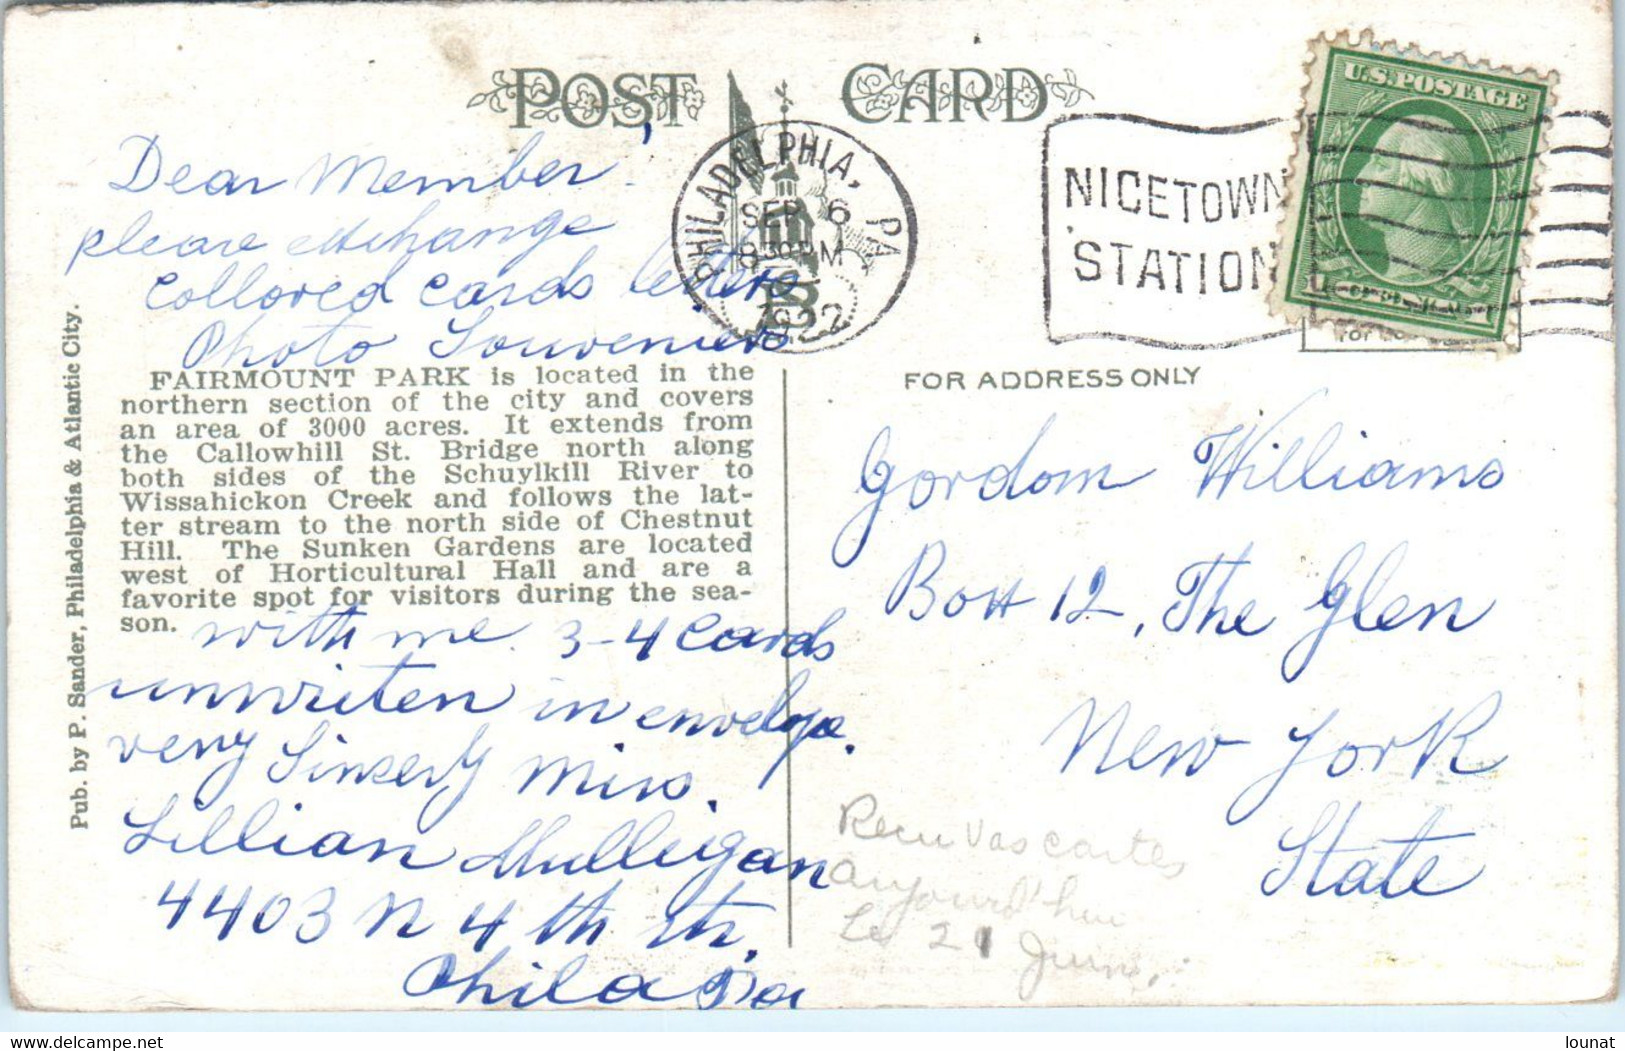 POST CARD
PHILADELPHIA, PA.
SEP 6
830 PM
1922
NICETOWN
STATION
U.S. POSTAGE
Dear Member!
please exchange
Collored cards letters
Photo Souveniers
FAIRMOUNT PARK is located in the
northern section of the city and covers
an area of 3000 acres. It extends from
the Callowhill St. Bridge north along
both sides of the Schuylkill River to
Wissahickon Creek and follows the lat-
ter stream to the north side of Chestnut
Hill. The Sunken Gardens are located
west of Horticultural Hall and are a
favorite spot for visitors during the sea-
son.
with me 3-4 Cards
unwriten in envelope.
very Sinserly Miss.
Lillian Mulligan
4403 N 4th Str.
Phila Pa
Pub. by P. Sander, Philadelphia & Atlantic City.
FOR ADDRESS ONLY
Gordom Williams
Box 12, The Glen
New York
State
Recu vos cartes
aujourd'hui
Le 21 Juin.
delcampe.net
lounat